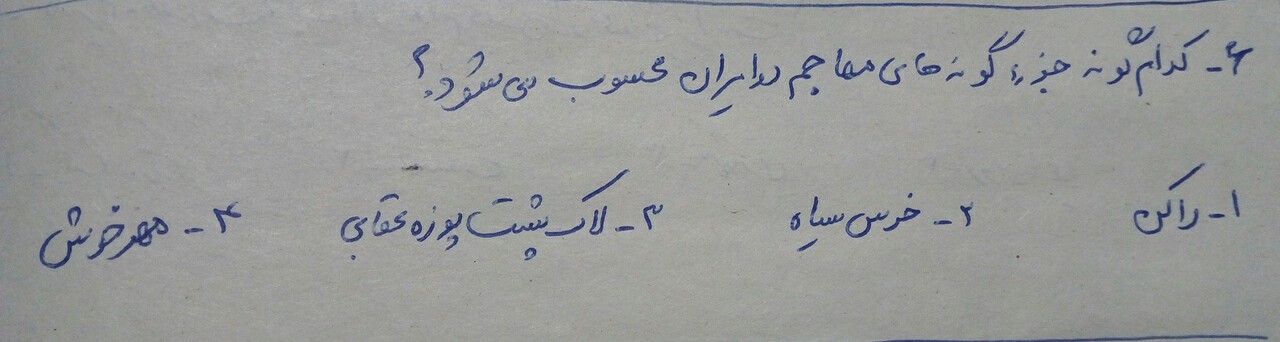 ۶- کدام گونه جزء گونه های مهاجم در ایران محسوب می شود؟
۱- راکن ۲- خرس سیاه ۳- لاک پشت پوزه عقابی ۴- مهرخوش